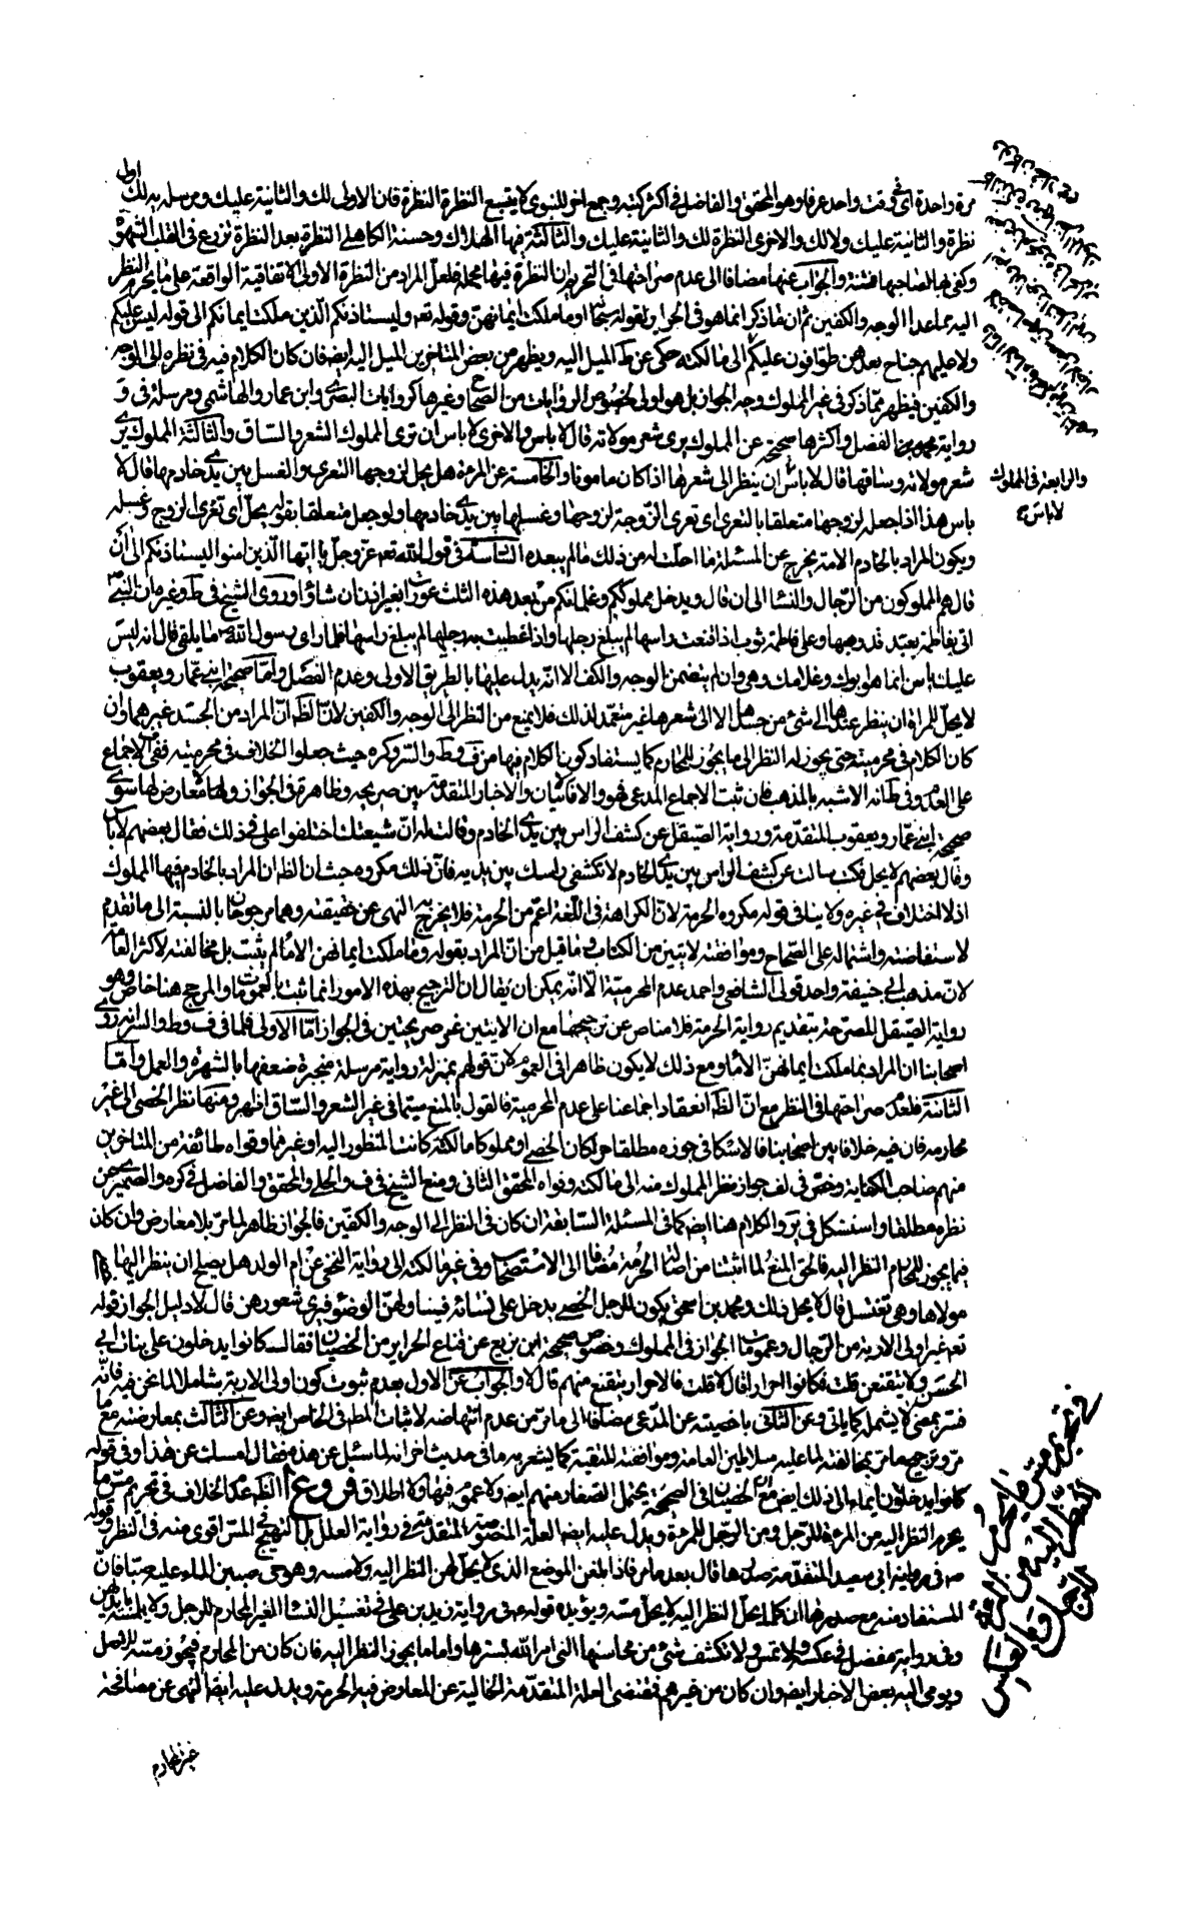 مرة واحدة اى فى وقت واحد عرفا وهو المحقق والفاضل فى اكثر كتبه وجمع اخر للنبوى لا يتبع النظرة النظرة فان الاولى لك والثانية عليك ومرسله به لك اول
نظرة والثانية عليك ولا لك والاخرى النظرة لك والثانية عليك والثالثة فيها الهلاك وحسنة الكاهلى النظرة بعد النظرة تزرع فى القلب الشهوة
وكفى بها لصاحبها فتنة والجواب عنها مضافا الى عدم صراحتها فى التحريم ان النظرة فيها مجملة فلعل المراد من النظرة الاولى الاتفاقية الواقعة على ما يحرم النظر
اليه مما عدا الوجه والكفين ثم ان ما ذكر انما هو فى الحرائر لقوله سبحانه او ما ملكت ايمانهن وقوله تعه وليستاذنكم الذين ملكت ايمانكم الى قوله ليس عليكم
ولا عليهم جناح بعدهن طوافون عليكم الى مالكته حكى عن ط الميل اليه ويظهر من بعض المتاخرين الميل اليه ايضه فان كان الكلام فيه فى نظره الى الوجه
والكفين فيظهر مما ذكر فى غير المملوك وجه الجواز بل هو اولى لخصوص الروايات من الصحاح وغيرها كروايات البصرى وابن عمار والهاشمى ومرسلة فى و
رواية الفضل واكثرها صحيحة عن المملوك يرى شعر مولاته قال لا باس والاخرى لا باس ان ترى المملوك الشعر والساق والثالثة المملوك يرى
شعر مولاته وساقها قال لا باس ان ينظر الى شعرها اذا كان مامونا والخامسة عن المرءة هل يحل لزوجها التعرى والغسل بين يدى خادمها قال لا
والرابعة فى المملوك
لا باس
باس هذا اذا جعله لزوجها متعلقا بالتعرى اى تعرى الزوجة لزوجها وغسلها بين يدى خادمها ولو جعل متعلقا بقوله يحل اى تعرى الزوج وغسله
ويكون المراد بالخادم الامة يخرج عن المسئلة ما احلت له من ذلك ما لم يبعده السادسة فى قول الله تعه عز وجل يا ايها الذين امنوا ليستاذنكم الى ان
قال هم المملوكون من الرجال والنساء الى ان قال ويدخل مملوككم وغلمانكم من بعد هذه الثلث عورات بغير اذن ان شاؤا وروى الشيخ فى ط وغيره ان النبى
اتى فاطمة بعبد قد وهبها وعلى فاطمة ثوب اذا قنعت راسها لم يبلغ رجلها واذا غطيت به رجليها لم يبلغ راسها فلما راى رسول الله ما يلقى قال انه ليس
عليك باس انما هو ابوك وغلامك وهى وان لم يتضمن الوجه والكف الا انه يدل عليها بالطريق الاولى وعدم الفصل واما صحيحة ابنى عمار ويعقوب
لا يحل للمراة ان ينظر عبدها الى شئ من جسدها الا الى شعرها غير متعمد لذلك فلا يمنع من النظر الى الوجه والكفين لان الظه ان المراد من الجسد غيرهما وان
كان الكلام فى محرميته حتى يجوز له النظر الى ما يجوز للمحارم كما يستفاد كون الكلام فيها من ف وط والسر وكره حيث جعلوا الخلاف فى محرميته ففى الاجماع
على العدم وفى ط انه الاشبه بالمذهب فان ثبت الاجماع المدعى فهو والا فالايتان والاخبار المتقدمة بين صريحة وظاهرة فى الجواز ولا معارض لها سوى
صحيحة ابنى عمار ويعقوب المتقدمة ورواية الصيقل عن كشف الراس بين يدى الخادم وقالت له ان شيعتك اختلفوا على فى ذلك فقال بعضهم لا باس
وقال بعضهم لا يحل فكتب سالت عن كشف الراس بين يدى الخادم لا تكشفى راسك بين يديه فان ذلك مكروه حيث ان الظه ان المراد بالخادم فيها المملوك
اذ لا اختلاف فى غيره ولا ينافى قوله مكروه الحرمة لان الكراهة فى اللغة اعم من الحرمة فلا يخرج به النهى عن حقيقته وهما مرجوحان بالنسبة الى ما تقدم
لاستفاضته واشتماله على الصحاح وموافقته لايتين من الكتاب وما قيل من ان المراد بقوله وما ملكت ايمانهن الاماء لم يثبت بل مخالفته لاكثر العامة
لان مذهب ابى حنيفة واحد قولى الشافعى واحمد عدم المحرمية الا انه يمكن ان يقال ان الترجيح بهذه الامور انما ثبت بالعمومات والمرجح هنا خاص وهو
رواية الصيقل المصرحة بتقديم رواية الحرمة فلا مناص عن ترجيحها مع ان الايتين غير صريحتين فى الجواز اما الاولى فلما فى ف وط والسر انه روى
اصحابنا ان المراد بما ملكت ايمانهن الاماء ومع ذلك لا يكون ظاهرا فى العموم لان قولهم بمنزلة رواية مرسلة منجبرة ضعفها بالشهرة والعمل واما
الثانية فلعدم صراحتها فى النظر مع ان الظه انعقاد اجماعنا على عدم المحرمية فالقول بالمنع سيما فى غير الشعر والساق اظهر ومنها نظر الخصى الى غير
محارمه فان فيه خلافا بين اصحابنا فالاسكافى جوزه مطلقا حرا كان الخصى او مملوكا مالكته كانت المنظور اليه او غيرها وقواه طائفة من المتاخرين
منهم صاحب الكفاية وخص فى لف جواز نظر المملوك منه الى مالكته وقواه المحقق الثانى ومنع الشيخ فى ف والحلى والمحقق والفاضل فى كره والصيمرى عن
نظره مطلقا واستشكل فى ير والكلام هنا ايضه كما فى المسئلة السابقة ان كان فى النظر الى الوجه والكفين فالجواز ظاهر لما مر بلا معارض وان كان
فيما يجوز للمحارم النظر اليه فالحق المنع لما اثبتنا من اصالة الحرمة مضافا الى الاستصحاب وفى غير مالكته الى رواية النخعى عن ام الولد هل يصلح ان ينظر اليها
مولاها وهى تغتسل قال لا يحل ذلك ومحمد بن اسحق يكون للرجل الخصى يدخل على نسائه فيناولهن الوضوء فيرى شعورهن قال لا دليل الجواز قوله
تعه غير اولى الاربة من الرجال وعمومات الجواز فى المملوك وخصوص صحيحة ابن بزيع عن قناع الحراير من الخصيان فقال كانوا يدخلون على بنات ابى
الحسن ولا يتقنعن قلت فكانوا احرارا قال لا قلت فالاحرار يتقنع منهم قال لا والجواب عن الاول بعدم ثبوت كون اولى الاربة شاملا لما نحن فيه فانه
فسر بمعنى لا يشمله كما ياتى وعن الثانى باخصيته عن المدعى مضافا الى ما مر من عدم انتهاضه لاثبات المط فى الخاص ايضه وعن الثالث بمعارضته مع ما
مر وترجيح ما مر بمخالفته لما عليه سلاطين العامة وموافقته للتقية كما يشعر به ما فى حديث اخر انه لما سئل عن هذه فقال امسك عن هذا وفى قوله
كانوا يدخلون ايماء الى ذلك ايضه مع ان الخصيان فى الصحيحة يحتمل الصغار منهم ايضه ولا عموم فيها ولا اطلاق فروع ا الظه عدم الخلاف فى تحريم مس ما
يحرم النظر اليه من المرءة للرجل ومن الرجل للمرءة ويدل عليه ايضه العلة المنصوصة المتقدمة فى رواية العلل بل التهيج المس اقوى منه فى النظر وقوله
صه فى رواية ابى سعيد المتقدمة صدرها قال بعد ما مر فاذا بلغن الموضع الذى لا يحل لهن النظر اليه ولا مسه وهو حى صببن الماء عليه صبا فان
المستفاد منه مع صدرها ان كلما يحل النظر اليه لا يحل مسه ويؤيده قوله عه فى رواية زيد بن على فى تغسيل النساء الغير المحارم للرجل ولا يلمسنه بايديهن
وفى رواية مفضل فى عكسه ولا تمس ولا تكشف شئ من محاسنها التى امر الله بسترها واما ما يجوز النظر اليه فان كان من المحارم فيجوز مسه للاصل
ويومى اليه بعض الاخبار ايضه وان كان من غيرهم فمقتضى العلة المتقدمة الخالية عن المعارض فيه الحرمة ويدل عليه ايضا النهى عن مصافحة
فى تحريم مس ما يحرم
النظر اليه من المرءة
للرجل وبالعكس
غير المحارم